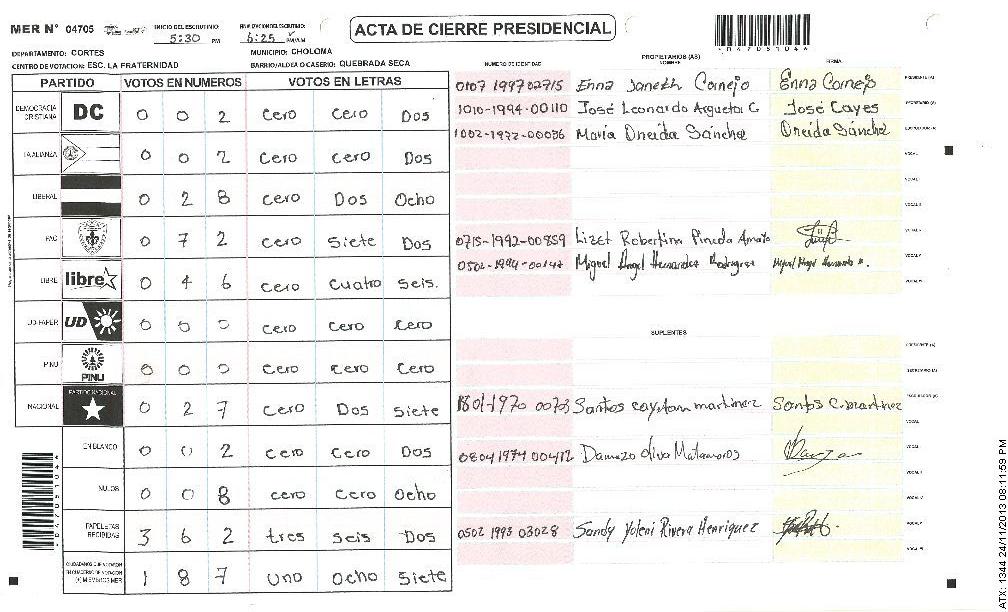 MER N° 04705 INICIO DEL ESCRUTINIO: 5:30 PM FINALIZACION DEL ESCRUTINIO: 6:25 PM/AM
ACTA DE CIERRE PRESIDENCIAL
DEPARTAMENTO: CORTES MUNICIPIO: CHOLOMA
CENTRO DE VOTACION: ESC. LA FRATERNIDAD BARRIO/ALDEA O CASERIO: QUEBRADA SECA
PARTIDO VOTOS EN NUMEROS VOTOS EN LETRAS
DEMOCRACIA CRISTIANA DC 0 0 2 Cero Cero Dos
LA ALIANZA 0 0 2 Cero Cero Dos
LIBERAL 0 2 8 Cero Dos Ocho
PAC 0 7 2 Cero Siete Dos
LIBRE libre 0 4 6 Cero Cuatro Seis.
UD-FAPER UD 0 0 0 Cero Cero Cero
PINU PINU 0 0 0 Cero Cero Cero
NACIONAL PARTIDO NACIONAL 0 2 7 Cero Dos Siete
EN BLANCO 0 0 2 Cero Cero Dos
NULOS 0 0 8 cero Cero Ocho
PAPELETAS RECIBIDAS 3 6 2 tres Seis Dos
CIUDADANOS QUE VOTARON EN CUADERNO DE VOTACION (+) MIEMBROS MER 1 8 7 Uno Ocho Siete
NUMERO DE IDENTIDAD PROPIETARIOS (AS) NOMBRE FIRMA
0107 1997 02715 Enna Janeth Cornejo Enna Cornejo PRESIDENTE (A)
1010-1994-00110 José Leonardo Argueta C José Cayes SECRETARIO (A)
1002-1972-00036 María Oneida Sánchez Oneida Sánchez ESCRUTADOR (A)
VOCAL
VOCAL I
VOCAL II
0715-1992-00859 Lizet Robertina Pineda Amaya
0502-1994-00147 Miguel Angel Hernandez Rodriguez
SUPLENTES
PRESIDENTE (A)
SECRETARIO (A)
1801-1970 00703 Santos cayetan martinez Santos C. martinez ESCRUTADOR (A)
VOCAL
0804 1974 00412 Damazo Oliva Matamoros
0502 1993 03028 Sandy Yoleni Rivera Henriquez
ATX: 1344 24/11/2013 08:11:59 PM